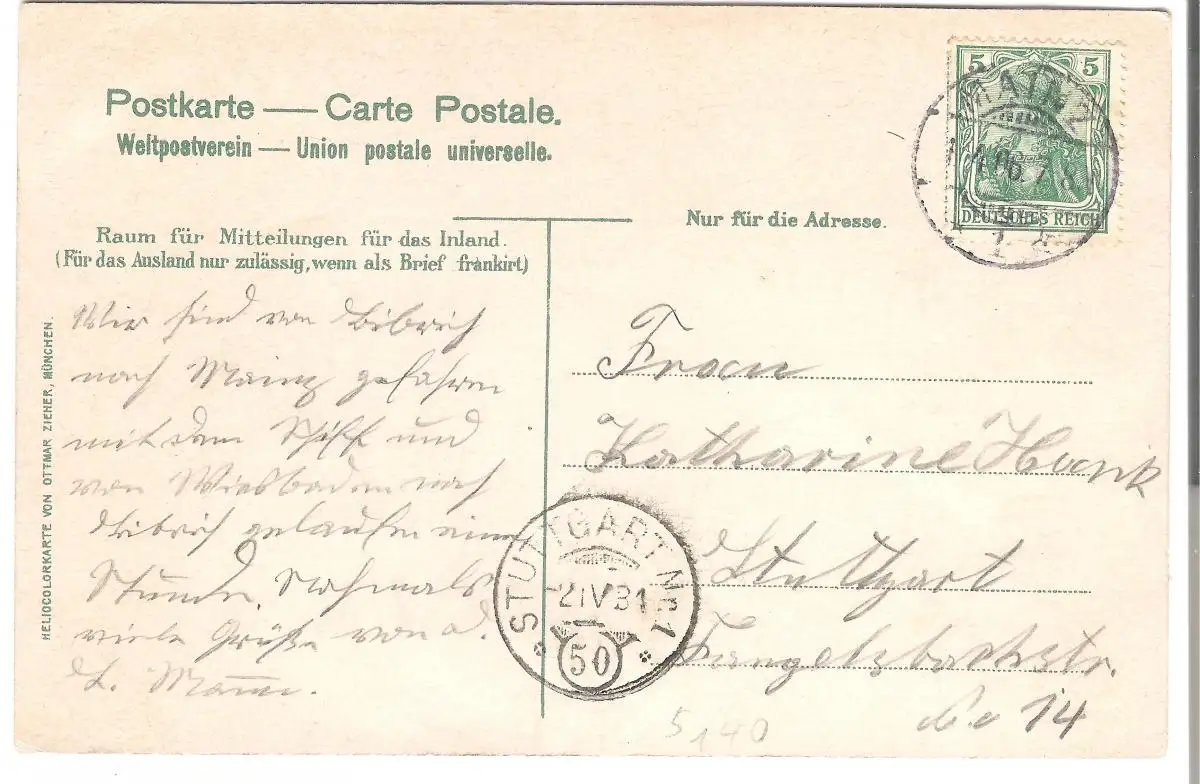 Postkarte — Carte Postale.
Weltpostverein — Union postale universelle.
5 5
MAINZ
DEUTSCHES REICH
Nur für die Adresse.
Raum für Mitteilungen für das Inland.
(Für das Ausland nur zulässig, wenn als Brief frankirt)
HELIOCOLORKARTE VON OTTMAR ZIEHER, MÜNCHEN.
Wir sind von Bibrich
nach Mainz gefahren
mit dem Schiff und
von Wiesbaden nach
Bibrich gelaufen eine
Stunde. Nochmals
viele Grüße von d.
L. Mann.
Frau
Katharine Hvank
Stuttgart
Fangelsbachstr.
No 14
STUTTGART No 1
-2 IV 31
50
5140